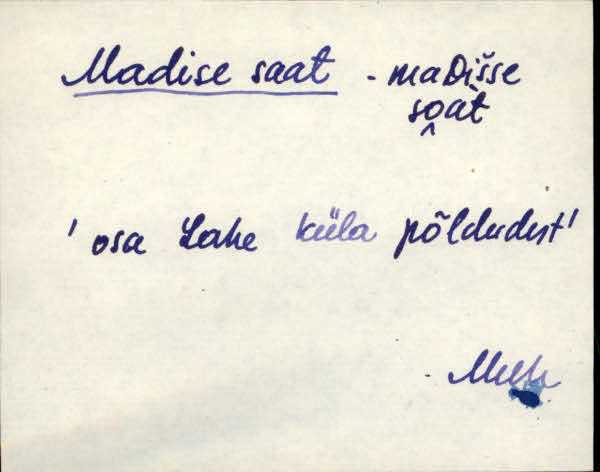 Madise saat - maDišse
soàt
' osa Lahe küla põldudest'